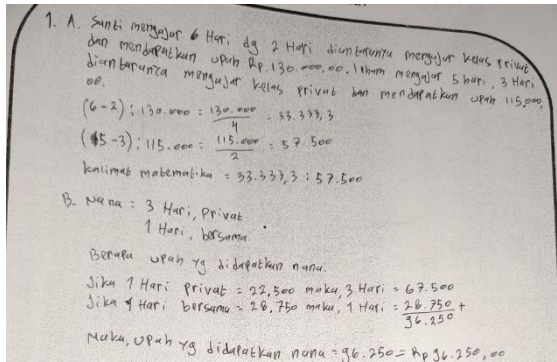 1. A. Santi mengajar 6 Hari dg 2 Hari diantaranya mengajar kelas privat
dan mendapatkan upah Rp.130.000,00. Ilham mengajar 5 hari, 3 Hari
diantaranya mengajar kelas privat dan mendapatkan upah 115.000,
00.
(6-2) : 130.000 = 130.000/4 = 33.333,3
(5-3) : 115.000 = 115.000/2 = 57.500
kalimat matematika = 33.333,3 : 57.500
B. Nana = 3 Hari, Privat
1 Hari, bersama
Berapa upah yg didapatkan nana.
Jika 1 Hari privat = 22.500 maka, 3 Hari = 67.500
Jika 1 Hari bersama = 28.750 maka, 1 Hari = 28.750 +
96.250
Maka, upah yg didapatkan nana = 96.250 = Rp 96.250,00